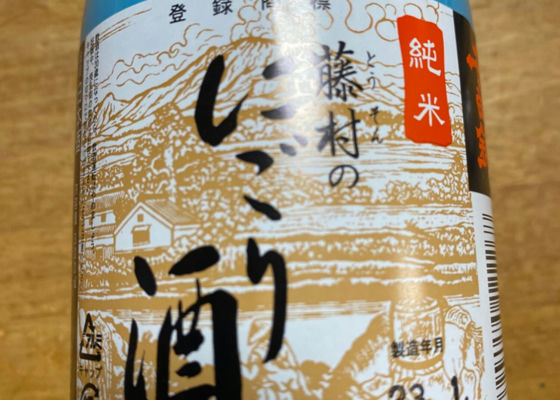 登録商標
純米
とうそん
藤村の
にごり酒
製造年月
23.1